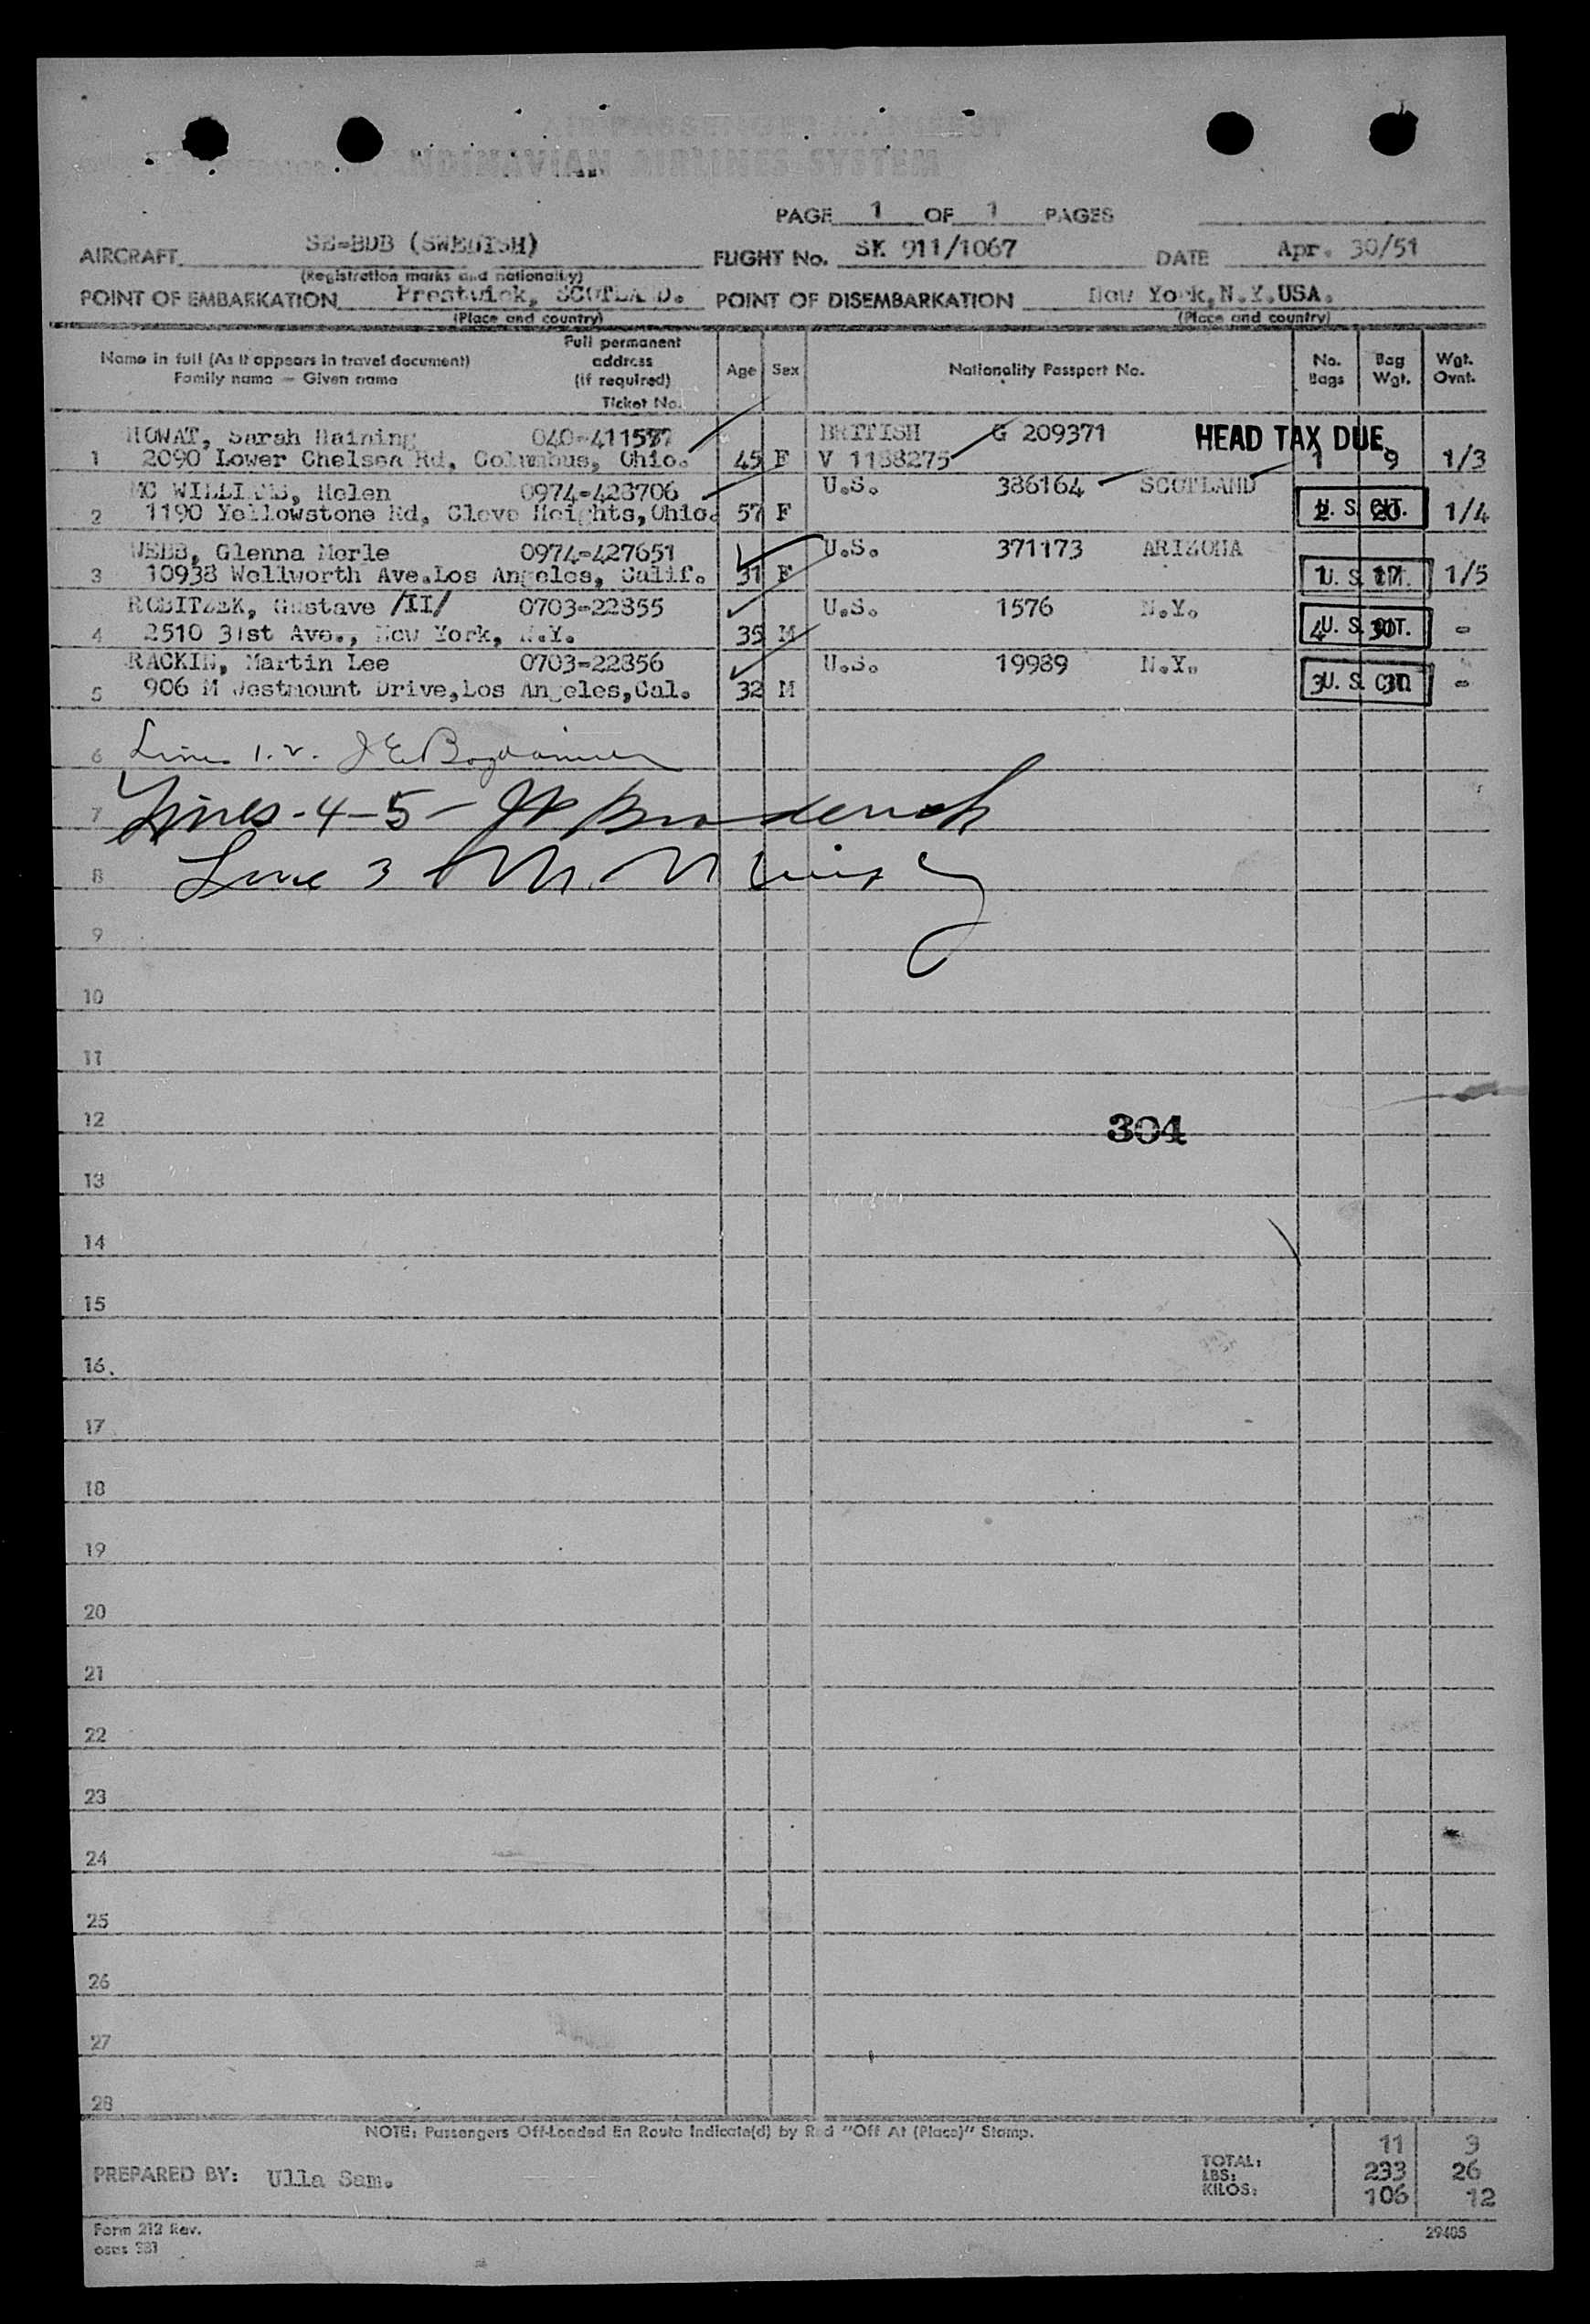 AIR PASSENGER MANIFEST
SCANDINAVIAN AIRLINES SYSTEM
PAGE 1 OF 1 PAGES
AIRCRAFT SE-BDB (SWEDISH) FLIGHT No. SK 911/1067 DATE Apr. 30/51
(Registration marks and nationality)
POINT OF EMBARKATION Prestwick, SCOTLAND. POINT OF DISEMBARKATION New York,N.Y.USA.
(Place and country) (Place and country)
Name in full (As it appears in travel document) Family name — Given name Full permanent address (if required) Ticket No. Age Sex Nationality Passport No. No. Bags Bag Wgt. Wgt. Ovnt.
HOWAT, Sarah Haining 040-411577 BRITISH G 209371 HEAD TAX DUE
1 2090 Lower Chelsea Rd, Columbus, Ohio. 45 F V 1188275 1 9 1/3
MC WILLIAMS, Helen 0974-428706 U.S. 386164 SCOTLAND
2 1190 Yellowstone Rd, Cleve Heights,Ohio. 57 F 2 20 U. S. CIT. 1/4
WEBB, Glenna Merle 0974-427651 U.S. 371173 ARIZONA
3 10938 Wellworth Ave.Los Angeles, Calif. 31 F 1 17 U. S. CIT. 1/5
ROBITZEK, Gustave /II/ 0703-22855 U.S. 1576 N.Y.
4 2510 31st Ave., New York, N.Y. 35 M 4 30 U. S. CIT. -
RACKIN, Martin Lee 0703-22856 U.S. 19989 N.Y.
5 906 M Westmount Drive,Los Angeles,Cal. 32 M 3 U. S. CIT. -
6 Lines 1.2. J E
7 Lines - 4 - 5 - Broderick
8 Line 3
9
10
11
12 304
13
14
15
16.
17
18
19
20
21
22
23
24
25
26
27
28
NOTE: Passengers Off-Loaded En Route Indicate(d) by Red "Off At (Place)" Stamp.
TOTAL: 11 3
PREPARED BY: Ulla Sam. LBS: 233 26
KILOS: 106 12
Form 212 Rev. 29405
osas 381